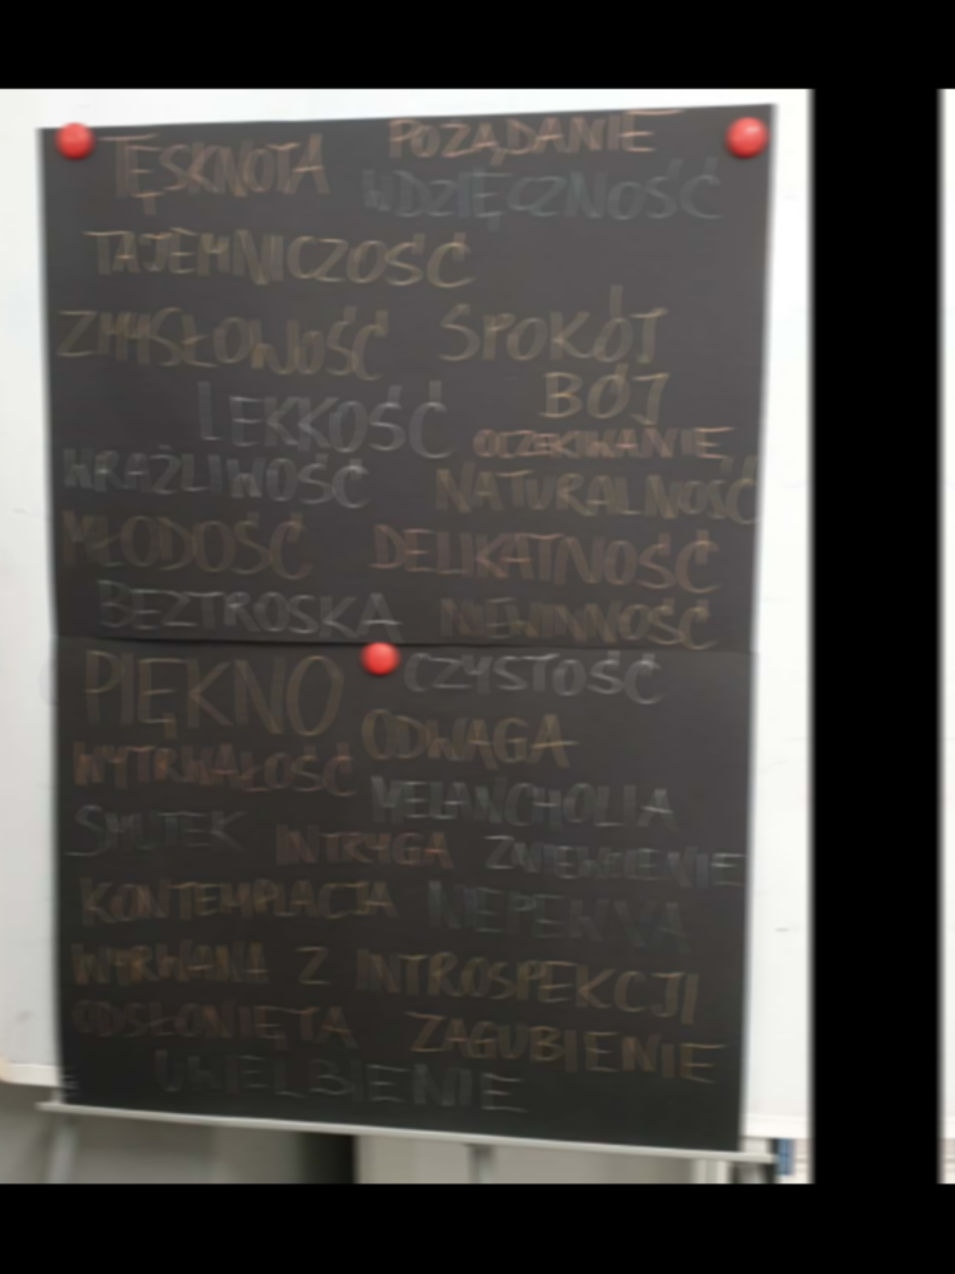 TĘSKNOTA POŻĄDANIE
WDZIĘCZNOŚĆ
TAJEMNICZOŚĆ
ZMYSŁOWOŚĆ SPOKÓJ
LEKKOŚĆ BÓJ
OCZEKIWANIE
WRAŻLIWOŚĆ NATURALNOŚĆ
MŁODOŚĆ DELIKATNOŚĆ
BEZTROSKA NIEWINNOŚĆ
PIĘKNO CZYSTOŚĆ
ODWAGA
WYTRWAŁOŚĆ
MELANCHOLIA
SMUTEK INTRYGA ZNIEWOLENIE
KONTEMPLACJA NIEPEWNA
WYRWANA Z INTROSPEKCJI
ODSŁONIĘTA ZAGUBIENIE
UWIELBIENIE